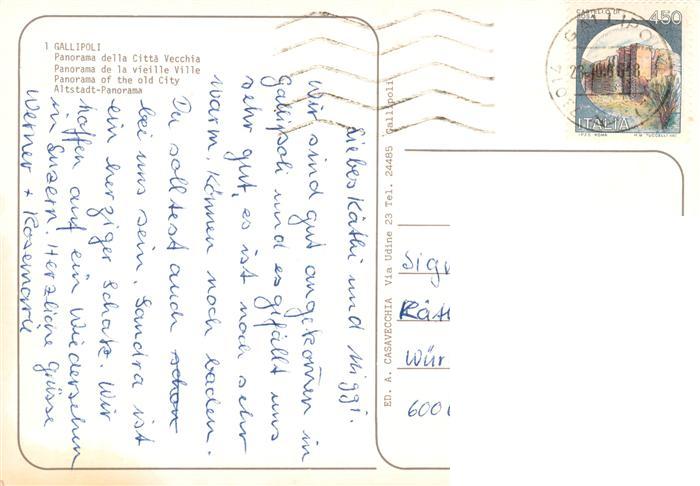 1 GALLIPOLI
Panorama della Città Vecchia
Panorama de la vieille Ville
Panorama of the old City
Altstadt-Panorama
Liebes Käthi und Miggi.
Wir sind gut angekommen in
Gallipoli und es gefällt uns
sehr gut, es ist noch sehr
warm, können noch baden.
Du solltest auch schon
bei uns sein. Sandra ist
ein herziger Schatz. Wir
hoffen auf ein Wiedersehen
in Luzern. Herzliche Grüsse
Werner + Rosemarie
ED. A. CASAVECCHIA Via Udine 23 Tel. 24485 Gallipoli
CASTELLO DI
450
ITALIA
I.P.Z.S. ROMA
GALLIPOLI
Sigr
Käth
Wür
600